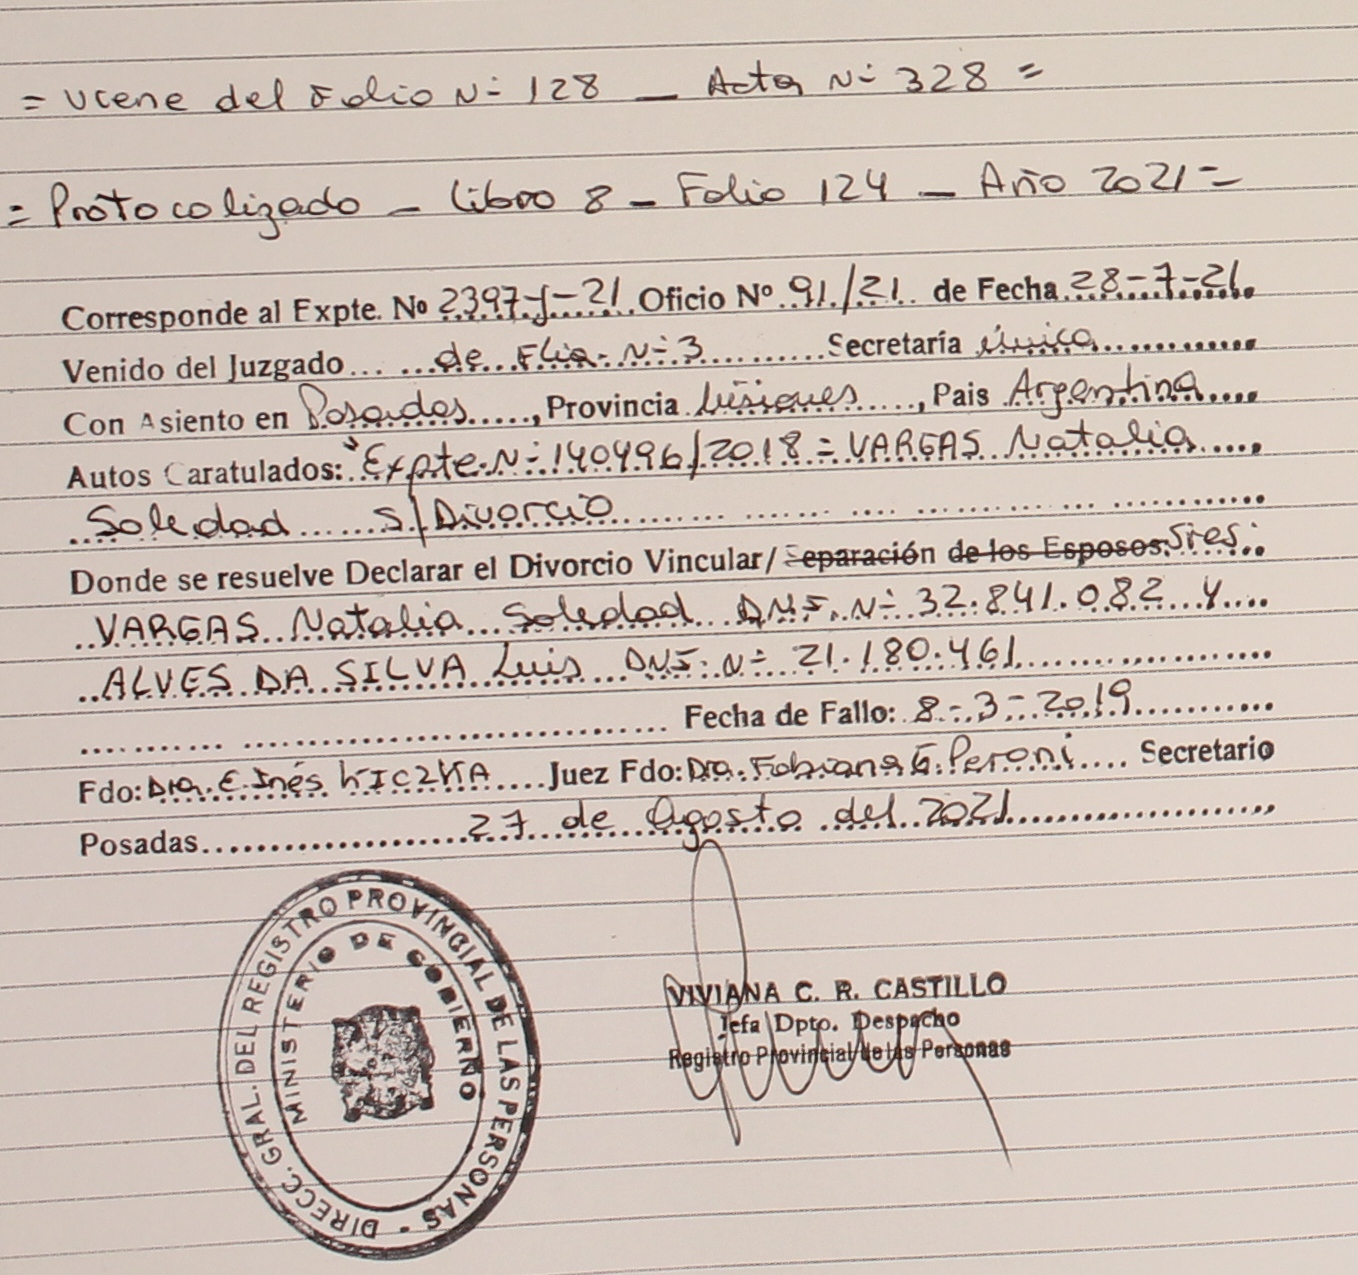 = Viene del Folio Nº 128 _ Acta Nº 328 =
= Protocolizado _ Libro 8 _ Folio 124 _ Año 2021 =
Corresponde al Expte. Nº 2397-J-21 Oficio Nº 91/21 de Fecha 28-7-21
Venido del Juzgado de Flia. Nº 3 Secretaría única
Con Asiento en Posadas, Provincia Misiones, Pais Argentina
Autos Caratulados: "Expte. Nº 140496/2018 = VARGAS Natalia
Soledad S/Divorcio
Donde se resuelve Declarar el Divorcio Vincular/ Separación de los Esposos: Sres.
VARGAS Natalia Soledad DNI. Nº 32.841.082 y
ALVES DA SILVA Luis DNI. Nº 21.180.461
Fecha de Fallo: 8-3-2019
Fdo: Dra. E. Inés KICZKA Juez Fdo: Dra. Fabiana G. Peroni Secretario
Posadas 27 de Agosto del 2021
DIRECC. GRAL. DEL REGISTRO PROVINCIAL DE LAS PERSONAS -
MINISTERIO DE GOBIERNO
VIVIANA C. R. CASTILLO
Jefa Dpto. Despacho
Registro Provincial de las Personas